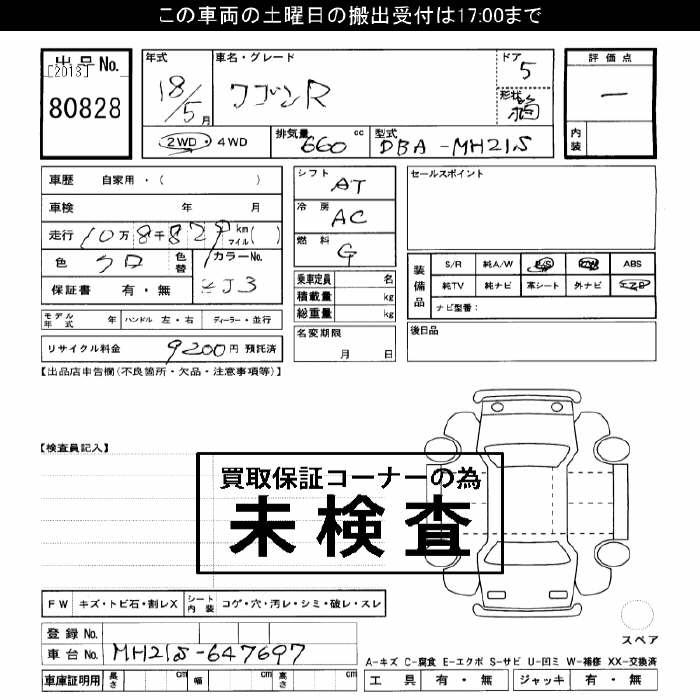 この車両の土曜日の搬出受付は17:00まで
出品No.
[2013]
80828
年式
18/5月
車名・グレード
ワゴンR
ドア
5
形状
箱
評価点
ー
内装
2WD・4WD
排気量 660 cc
型式 DBA-MH21S
車歴 自家用・( )
車検 年 月
走行 10万8千829 km マイル( )
色 クロ 色替
カラーNo. ZJ3
保証書 有・無
モデル年式 年 ハンドル 左・右 ディーラー・並行
リサイクル料金 9200円 預託済
シフト AT
冷房 AC
燃料 G
乗車定員 名
積載量 kg
総重量 kg
名変期限
月 日
セールスポイント
装備品
S/R 純A/W P/S P/W ABS
純TV 純ナビ 革シート 外ナビ エアB
ナビ型番:
後日品
【出品店申告欄(不良箇所・欠品・注意事項等)】
【検査員記入】
買取保証コーナーの為
未検査
FW キズ・トビ石・割レX シート内装 コゲ・穴・汚レ・シミ・破レ・スレ
スペア
登録No.
車台No. MH21S-647697
車庫証明用 長さ cm 幅 cm 高さ cm
A-キズ C-腐食 E-エクボ S-サビ U-凹ミ W-補修 XX-交換済
工具 有・無 ジャッキ 有・無